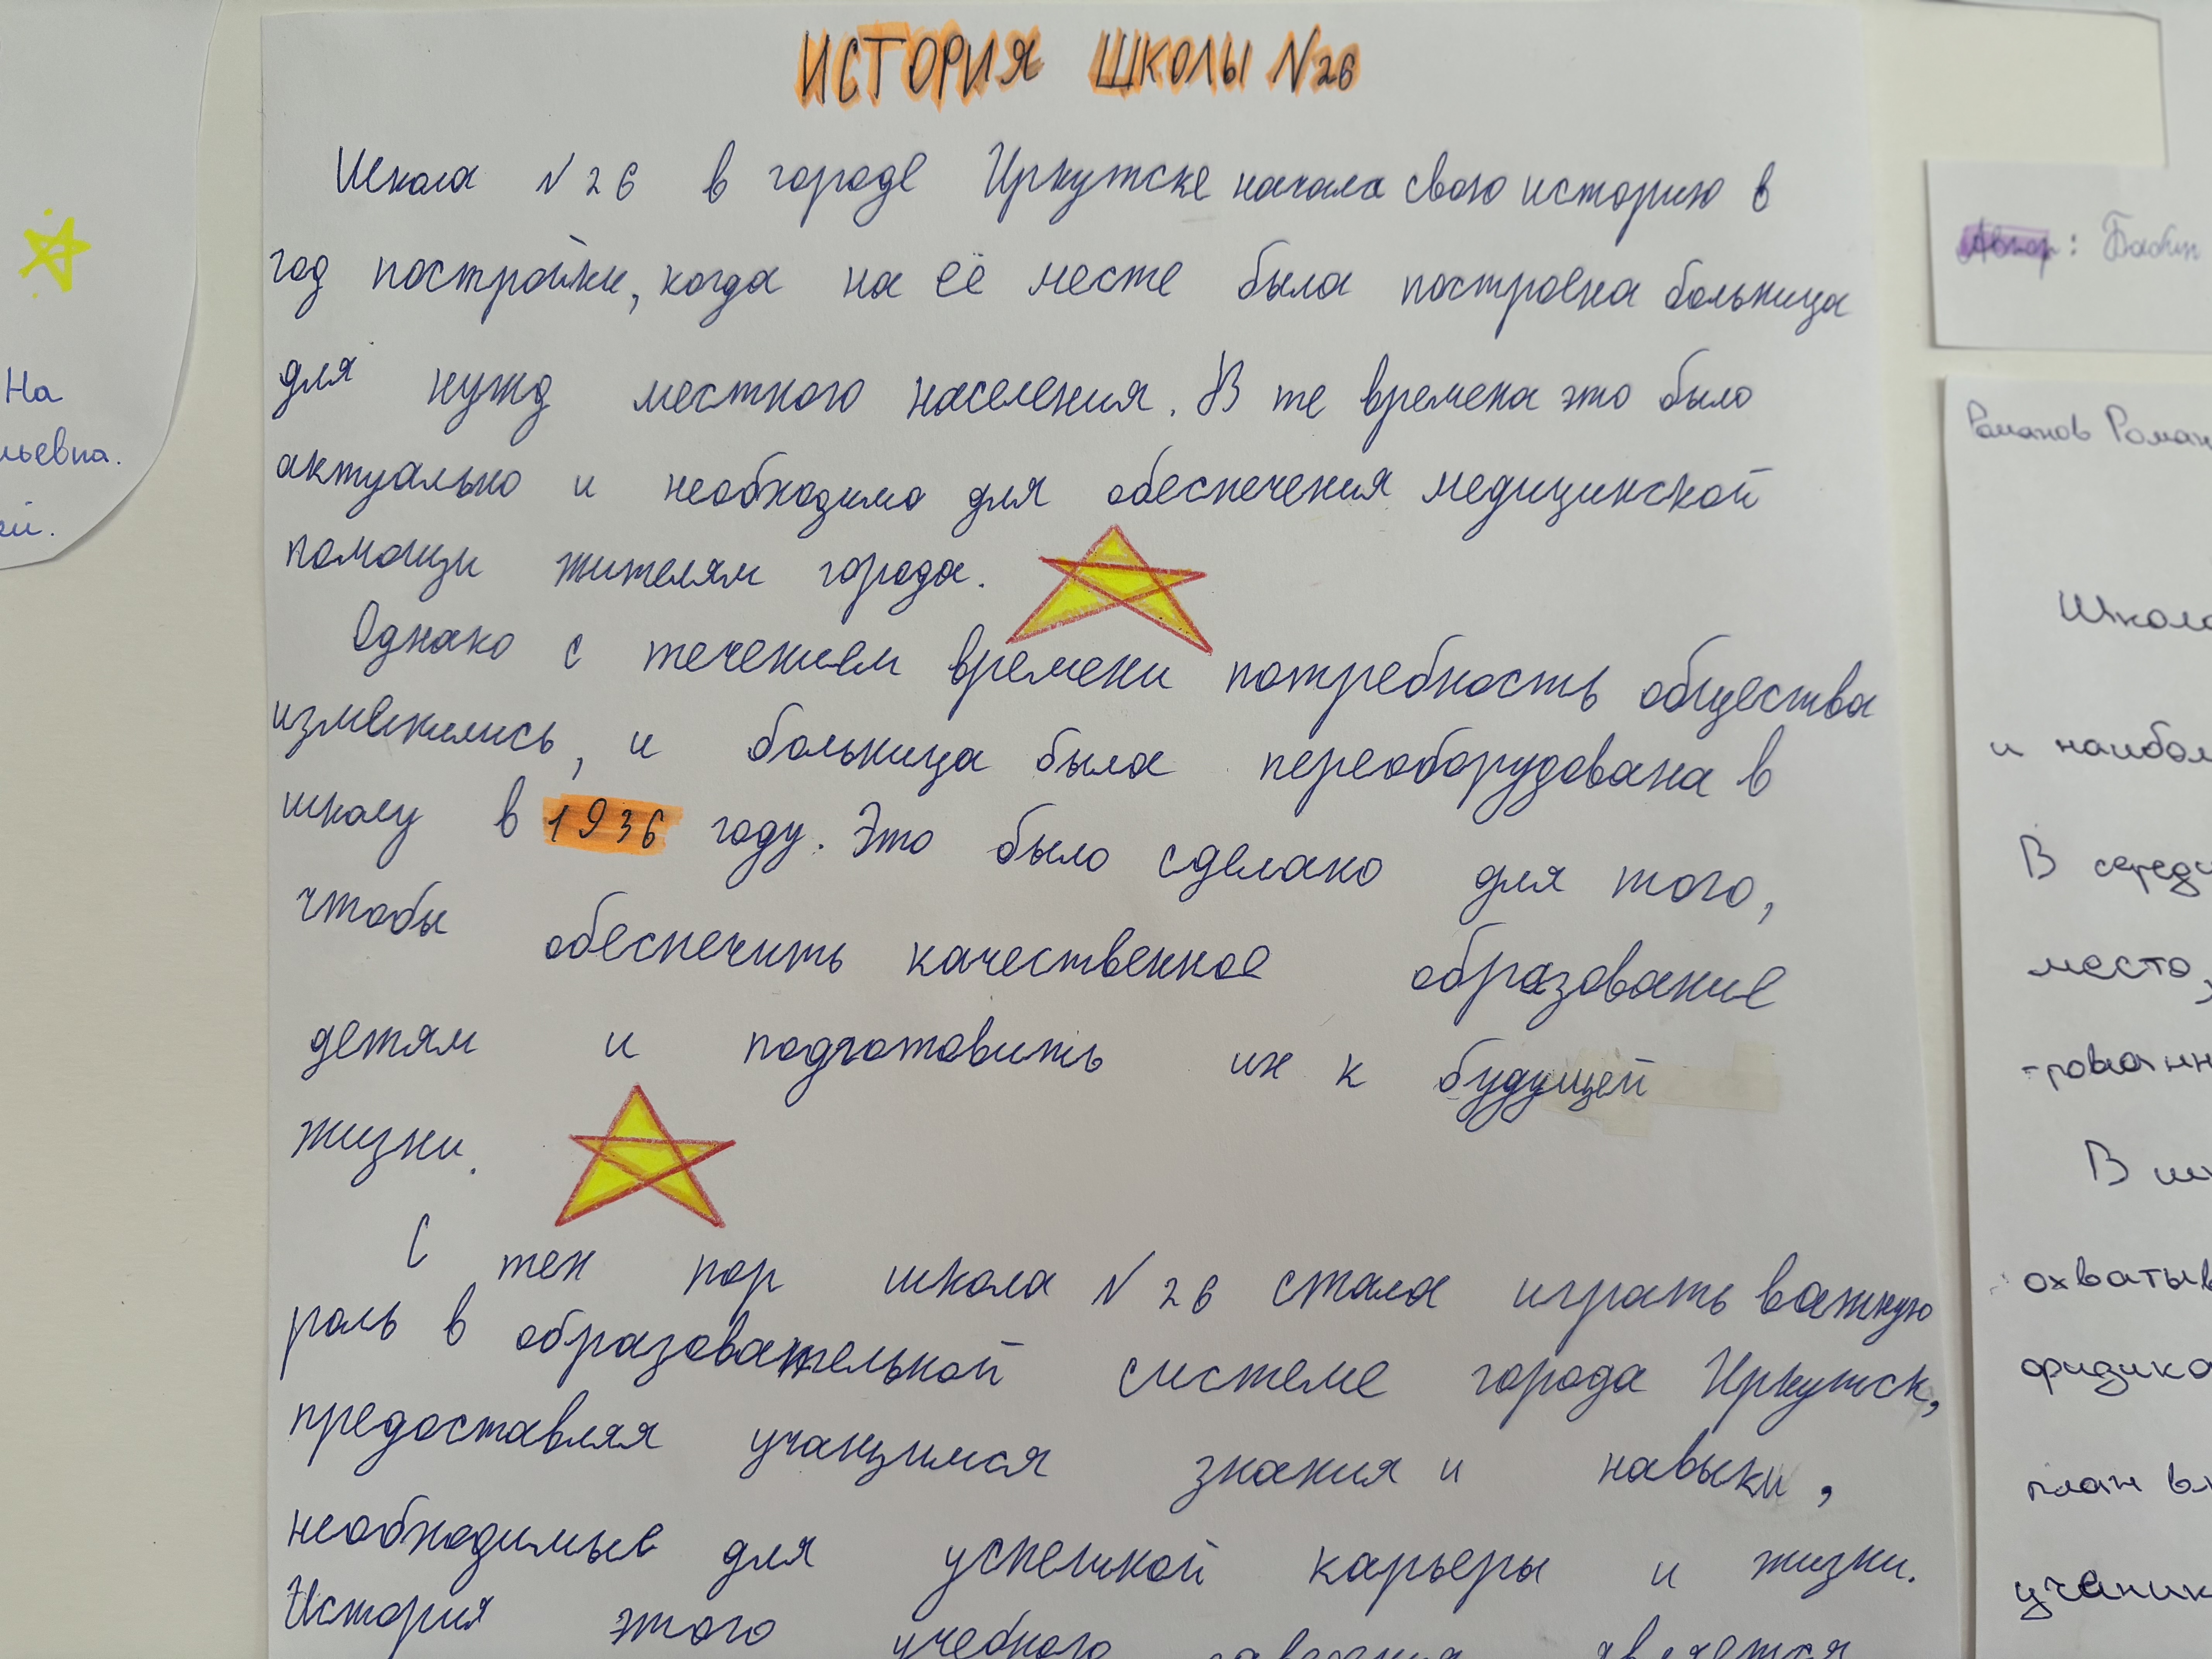 ИСТОРИЯ ШКОЛЫ N26
Школа N26 в городе Иркутске начала свою историю в
год постройки, когда на её месте была построена больница
для нужд местного населения. В те времена это было
актуально и необходимо для обеспечения медицинской
помощи жителям города.
Однако с течением времени потребность общества
изменились, и больница была переоборудована в
школу в 1936 году. Это было сделано для того,
чтобы обеспечить качественное образование
детям и подготовить их к будущей
жизни.
С тех пор школа N26 стала играть важную
роль в образовательной системе города Иркутск,
предоставляя учащимся знания и навыки,
необходимые для успешной карьеры и жизни.
История этого учебного заведения является
На
льевна.
ей.
Автор: Бабкин
Романов Роман
Школа
и наибол
В середи
место,
-рованн
В шк
охватыв
физика
план вл
ученик